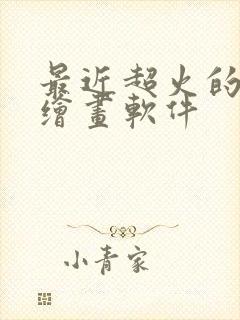 最近超火的
繪畫軟件
小青家